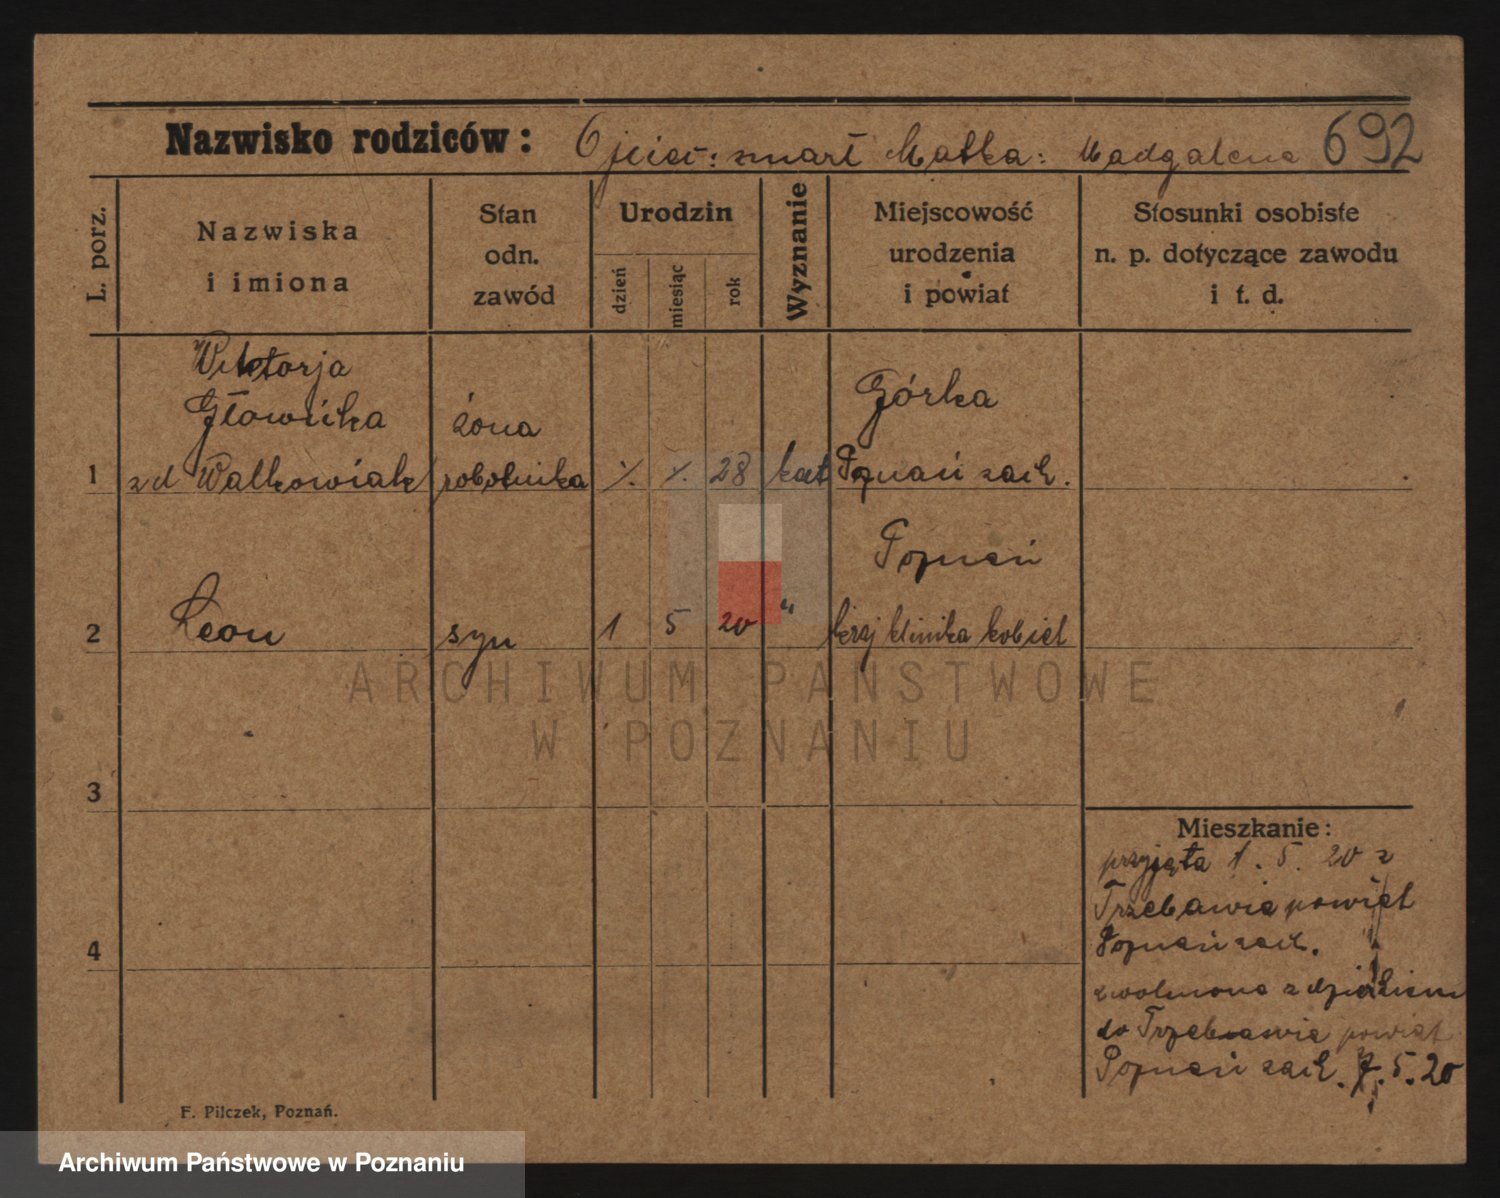 Nazwisko rodziców: Ojciec: zmarł Matka: Madgalena 692
L. porz.
Nazwiska
i imiona
Stan
odn.
zawód
Urodzin
dzień
miesiąc
rok
Wyznanie
Miejscowość
urodzenia
i powiat
Stosunki osobiste
n. p. dotyczące zawodu
i t. d.
Wiktorja
Głowicka
1 z d Walkowiak żona
robotnika % % 28 kat Górka
Poznań zach.
2 Leon syn 1 5 20 " Poznań
kraj klinika kobiet
ARCHIWUM PAŃSTWOWE
W POZNANIU
3
4
Mieszkanie:
przyjęta 1. 5. 20 z
Trzebawia powiat
Poznań zach.
zwolniona z dzieckiem
do Trzebawia powiat
Poznań zach. 7. 5. 20
F. Pilczek, Poznań.
Archiwum Państwowe w Poznaniu